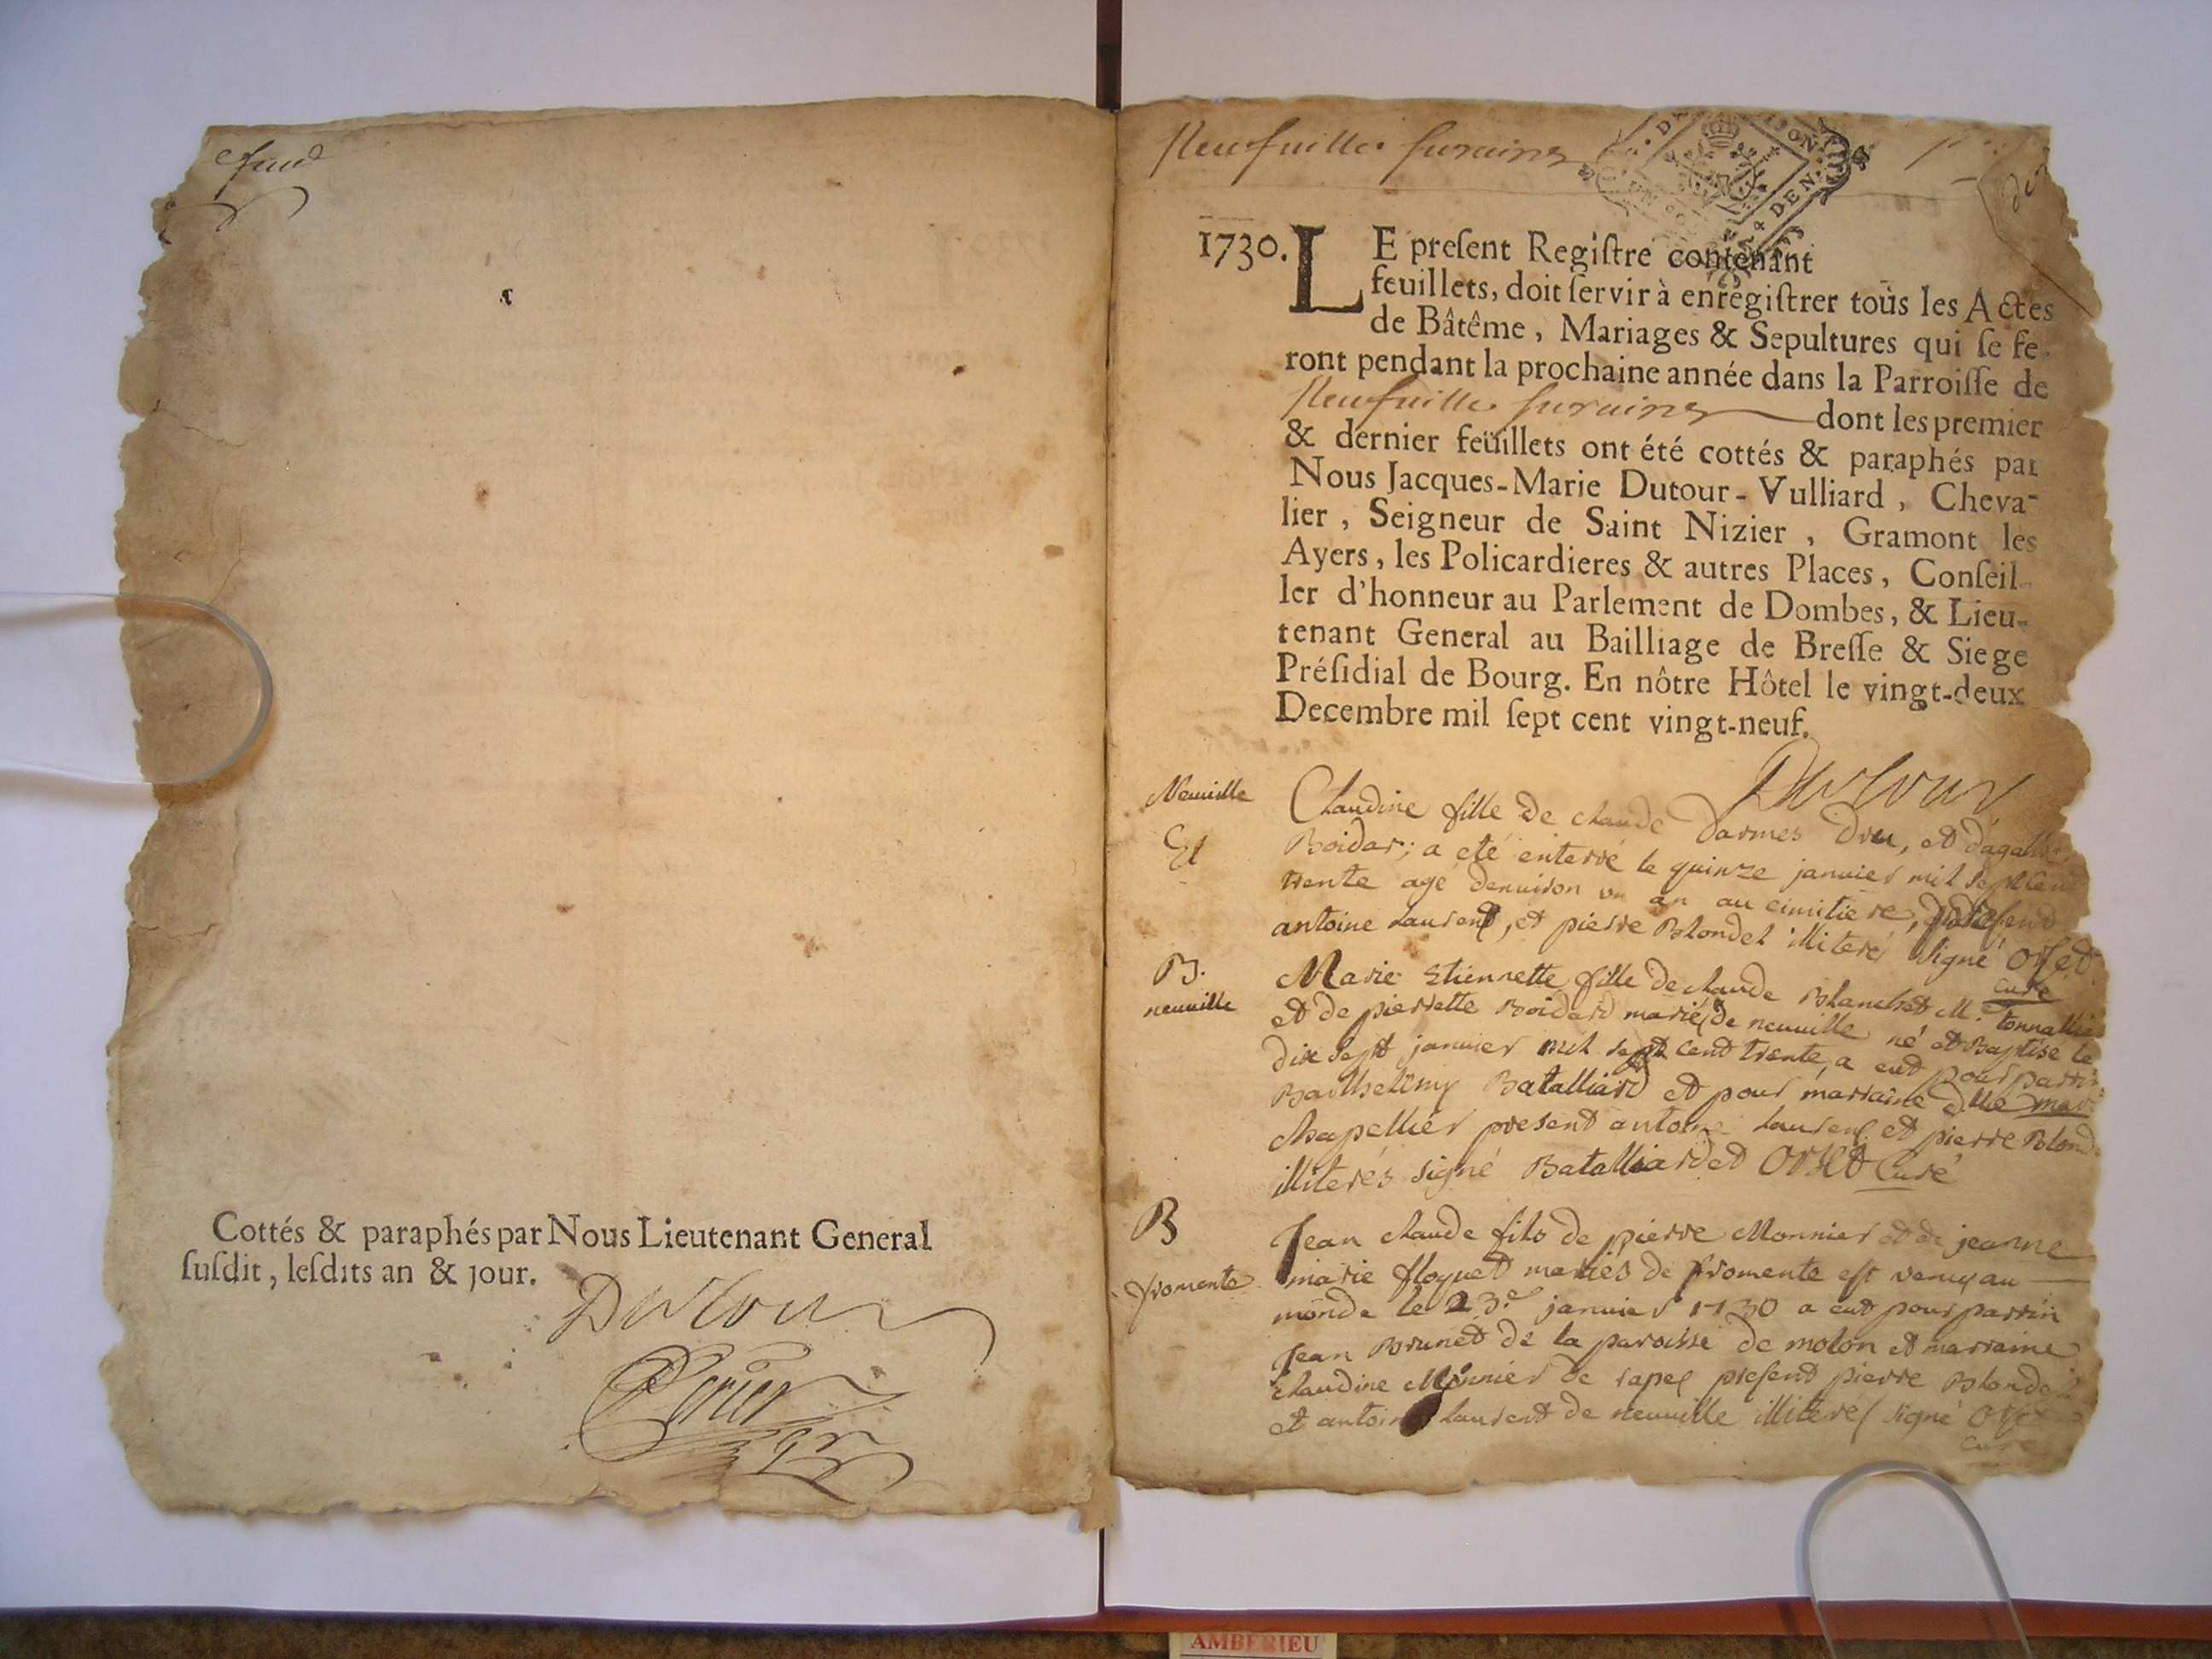 Cottés & paraphés par Nous Lieutenant General
susdit, lesdits an & jour.
Dutour
Perier
Neufuille surains
1730. LE present Registre contenant
feuillets, doit servir à enregistrer tous les Actes
de Bâtême, Mariages & Sepultures qui se fe-
ront pendant la prochaine année dans la Parroisse de
Neufuille surains dont les premier
& dernier feüillets ont été cottés & paraphés par
Nous Jacques-Marie Dutour-Vulliard, Cheva-
lier, Seigneur de Saint Nizier, Gramont les
Ayers, les Policardieres & autres Places, Conseil-
ler d'honneur au Parlement de Dombes, & Lieu-
tenant General au Bailliage de Bresse & Siege
Présidial de Bourg. En nôtre Hôtel le vingt-deux
Decembre mil sept cent vingt-neuf.
Dutour
Neuuille
Claudine fille de claude Darmes Dru, et d'agathe
Boidar; a eté enterré le quinze januier mil sept cent
trente agé denuiron un an au cimitiere,
antoine Laurent, et pierre Blondel illiteré signé Orset
curé
B.
neuuille
Marie Etiennette fille de claude Blanchet M. tonnallie
et de pierrette Boidard mariés de neuuille né et Baptisé le
dix sept januier mil sept cent trente, a eut pour parrin
Barthelemy Batalliard et pour marraine dlle
chapellier present antoine Laurent et pierre Blond
illiterés signé Batalliard et Orset Curé
B
fromente
Jean claude fils de pierre Monnier et de jeanne
marie floquet mariés de fromente est venu au
monde le 23.e januier 1730 a eut pour parrin
Jean Brunet de la paroisse de molon et marraine
claudine Monnier de rapes present pierre Blondel
et antoine Laurent de neuuille illiterés signé Orset
curé
AMBERIEU